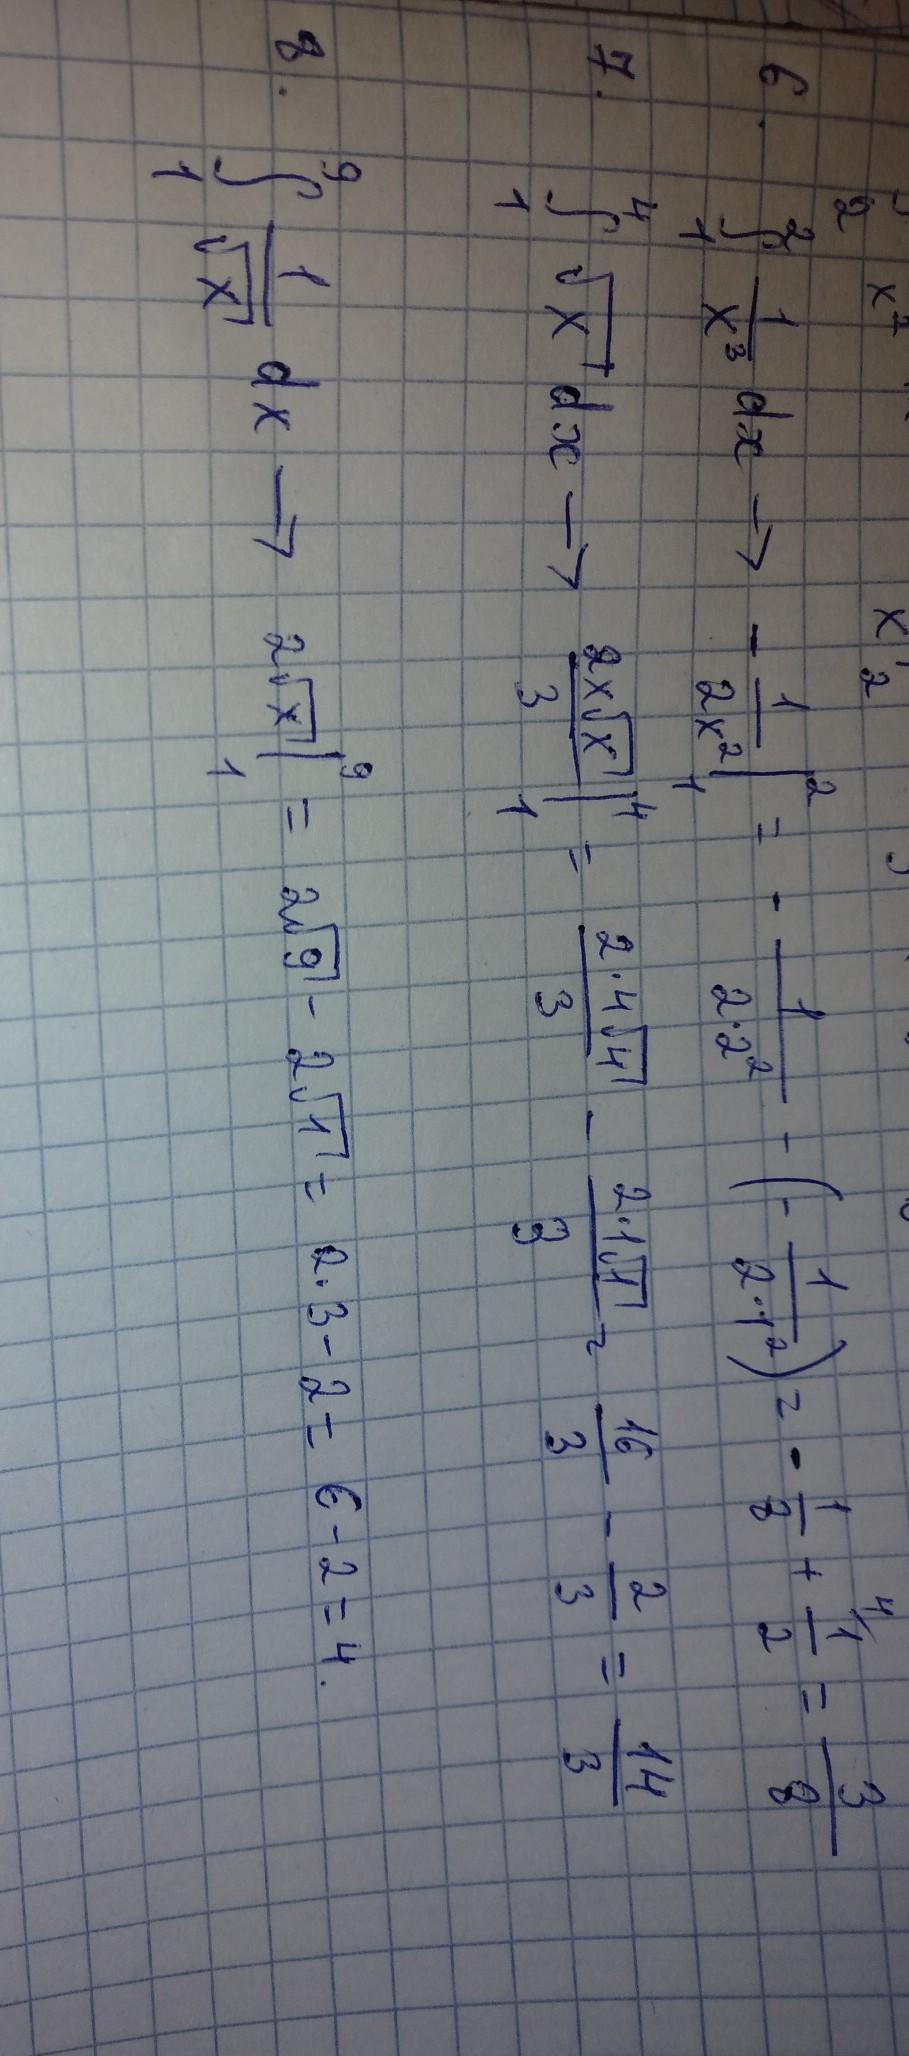 6. ∫₁² 1/x³ dx → - 1/2x² |₁² = - 1/2·2² - (- 1/2·1²) = - 1/8 + ⁴⁄1/2 = 3/8
7. ∫₁⁴ √x dx → 2x√x/3 |₁⁴ = 2·4√4/3 - 2·1√1/3 = 16/3 - 2/3 = 14/3
8. ∫₁⁹ 1/√x dx → 2√x |₁⁹ = 2√9 - 2√1 = 2·3 - 2 = 6 - 2 = 4.